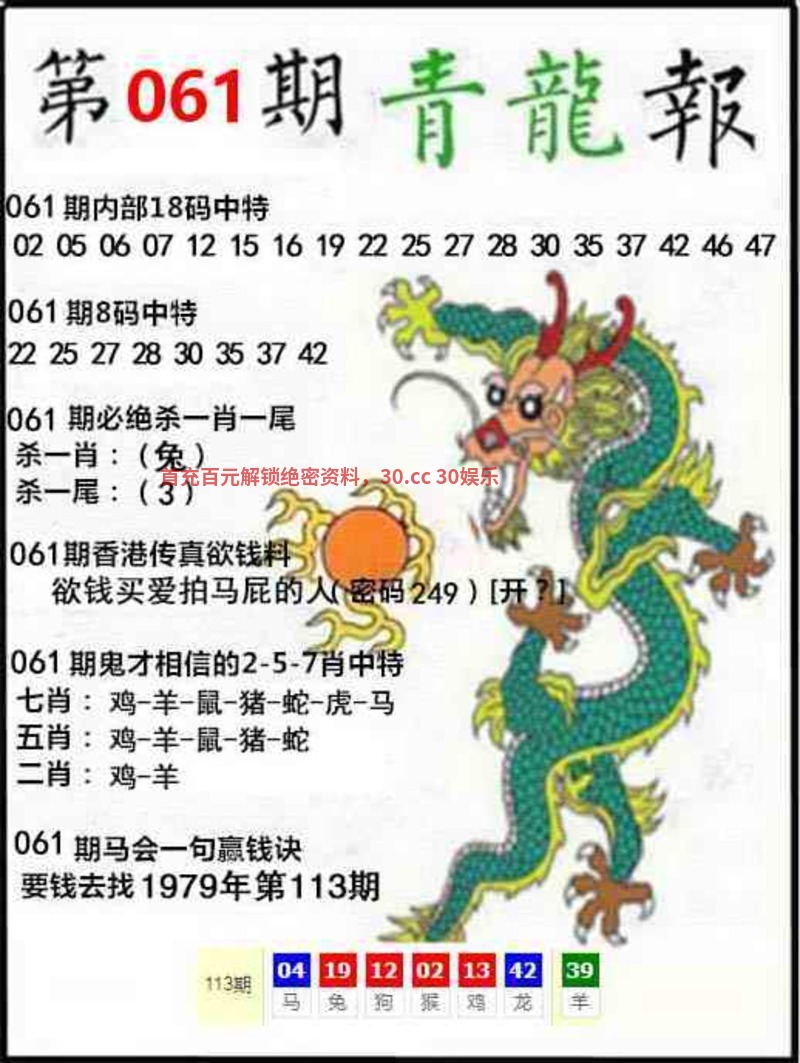 第061期青龍報
061期内部18码中特
02 05 06 07 12 15 16 19 22 25 27 28 30 35 37 42 46 47
061期8码中特
22 25 27 28 30 35 37 42
061期必绝杀一肖一尾
杀一肖：（兔）
首充百元解锁绝密资料，30.cc 30娱乐
杀一尾：（3）
061期香港传真欲钱料
欲钱买爱拍马屁的人(密码249）[开？]
061期鬼才相信的2-5-7肖中特
七肖：鸡-羊-鼠-猪-蛇-虎-马
五肖：鸡-羊-鼠-猪-蛇
二肖：鸡-羊
061期马会一句赢钱诀
要钱去找1979年第113期
113期 04 19 12 02 13 42 39
马 兔 狗 猴 鸡 龙 羊